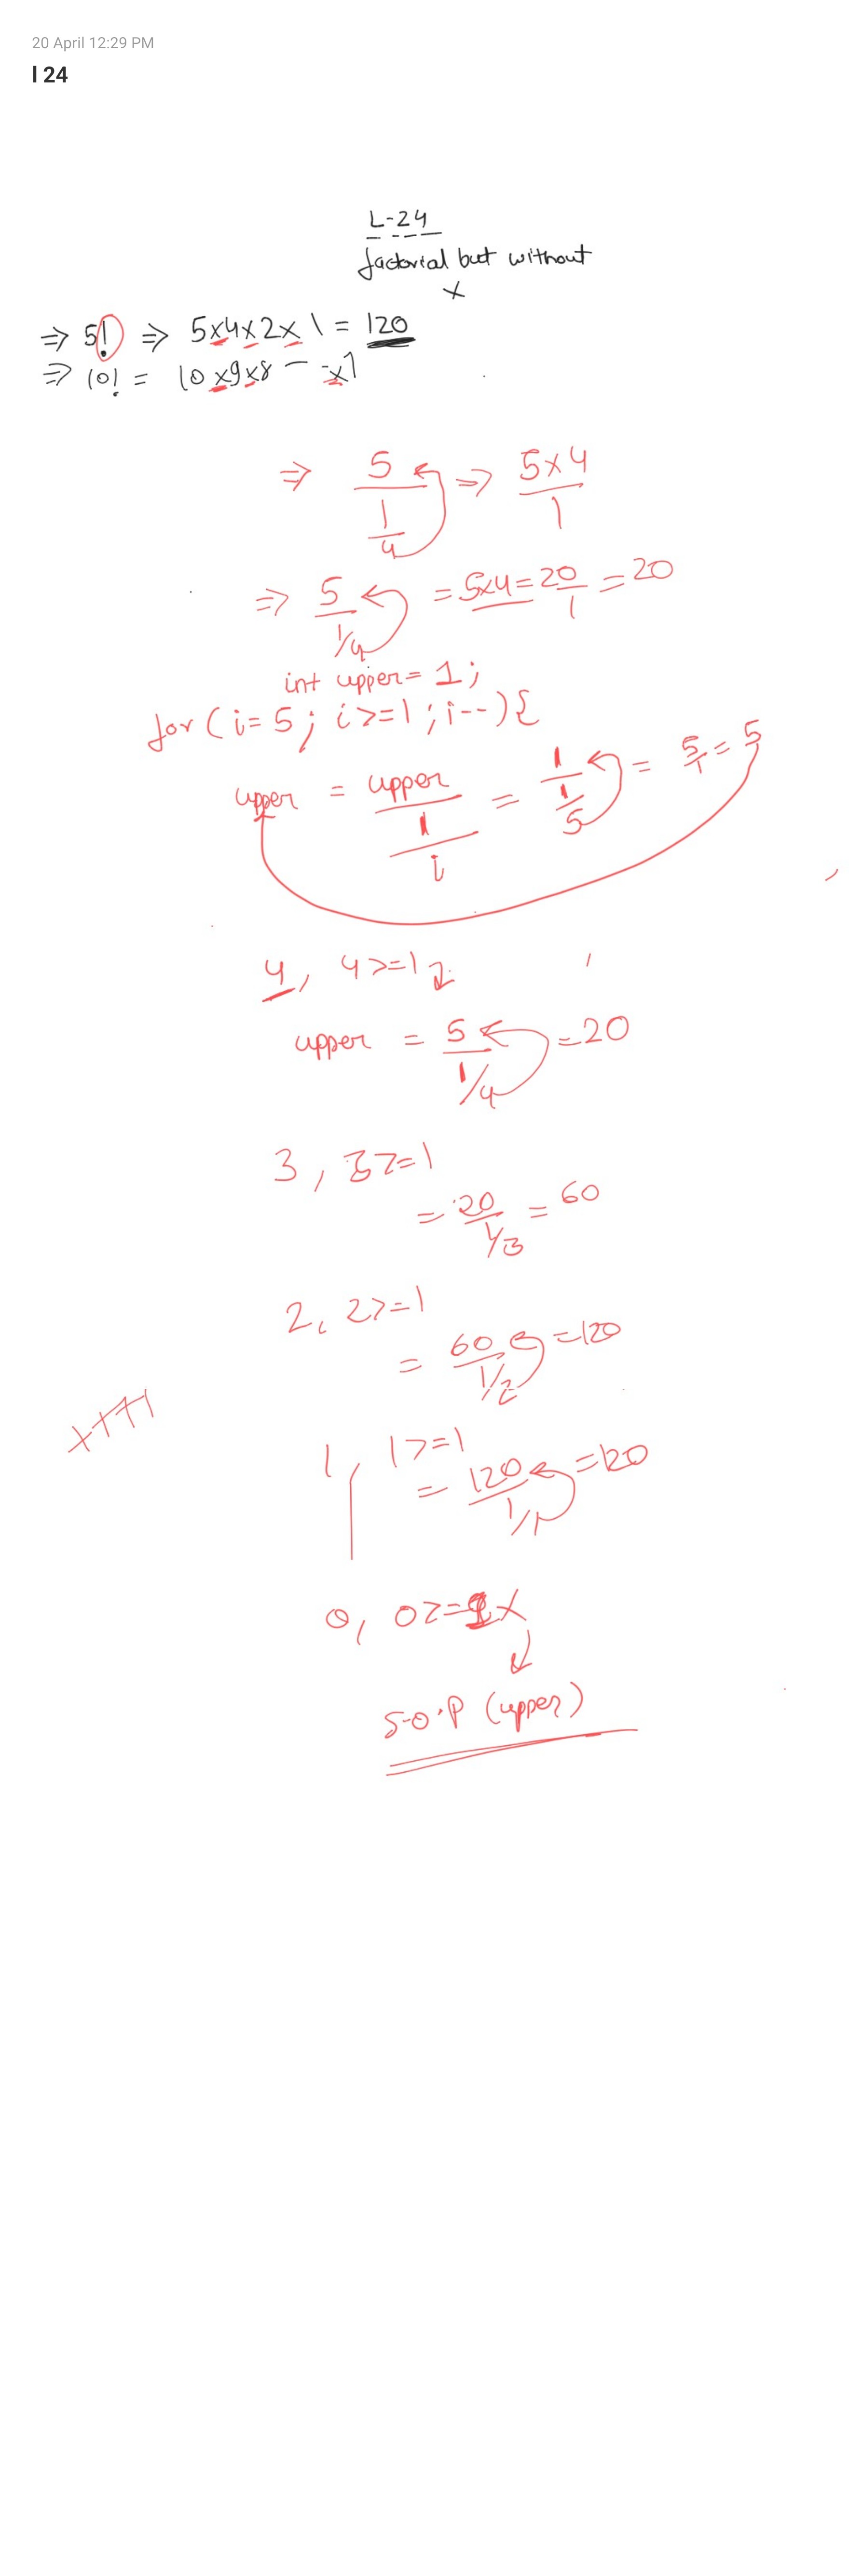 20 April 12:29 PM
I 24
L-24
factorial but without
x
⇒ 5! ⇒ 5x4x2x1 = 120
⇒ 10! = 10x9x8 - -x1
⇒ 5/(1/4) ⇒ 5x4/1
⇒ 5/(1/4) = 5x4 = 20/1 = 20
int upper = 1;
for (i = 5; i >= 1; i--) {
upper = upper/(1/i) = 1/(1/5) = 5/1 = 5
4, 4 >= 1
upper = 5/(1/4) = 20
3, 3 >= 1
= 20/(1/3) = 60
2, 2 >= 1
= 60/(1/2) = 120
1, 1 >= 1
= 120/(1/1) = 120
0, 0 >= 1 x
S.O.P (upper)